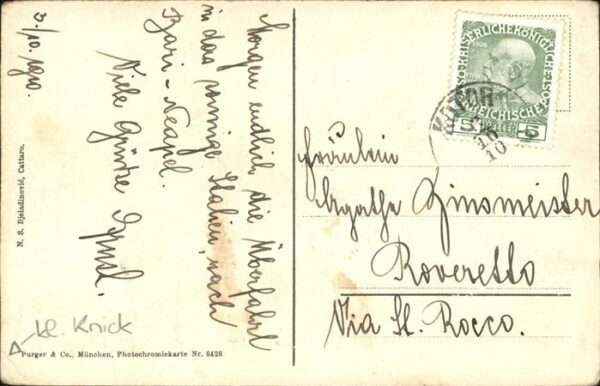 3./10. 1910.
Morgen endlich die Überfahrt
in das sonnige Italien, nach
Bari - Neapel.
Viele Grüße Ernst.
N. S. Bjeladinović, Cattaro.
kl. Knick
Purger & Co., München, Photochromiekarte Nr. 8428
KAISERLICHE KÖNIGLICHE
ÖSTERREICHISCHE POST
5 5
10
Fräulein
Agathe Zinsmeister
Roveretto
Via St. Rocco.